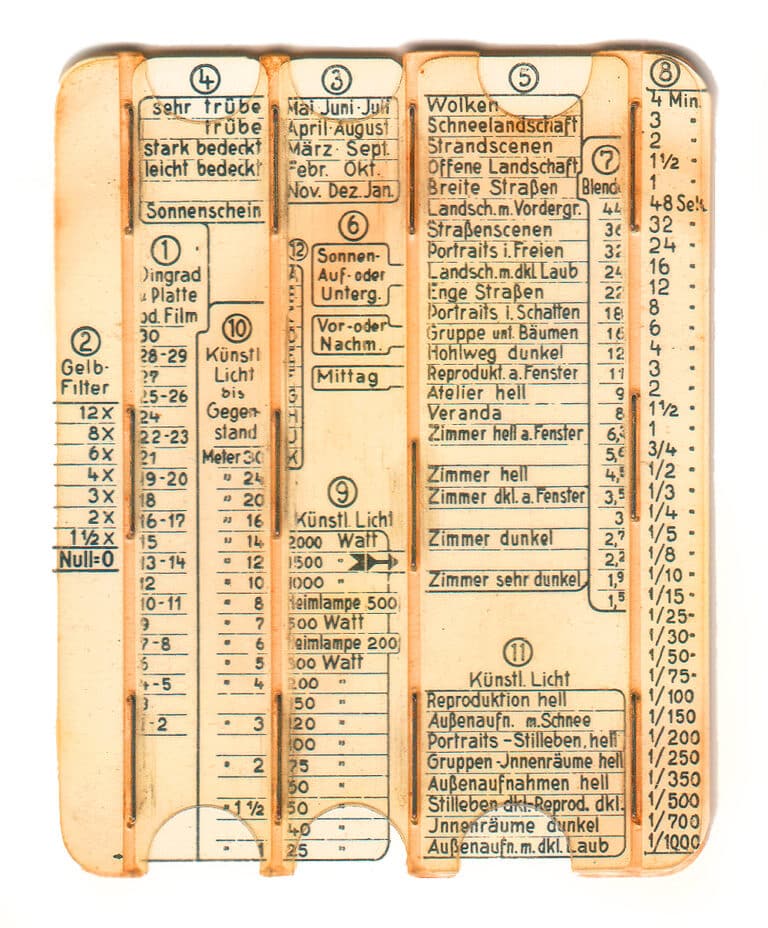 ④
sehr trübe
trübe
stark bedeckt
leicht bedeckt
Sonnenschein
①
Dingrad
u Platte
od. Film
30
28-29
27
25-26
24
22-23
21
19-20
18
16-17
15
13-14
12
10-11
9
7-8
6
4-5
3
1-2
②
Gelb-
Filter
12X
8X
6X
4X
3X
2X
1½X
Null=0
⑩
Künstl
Licht
bis
Gegen-
stand
Meter 30
" 24
" 20
" 16
" 14
" 12
" 10
" 8
" 7
" 6
" 5
" 4
" 3
" 2
" 1½
" 1
③
Mai Juni·Juli
April·August
März· Sept.
Febr. Okt.
Nov. Dez. Jan.
⑥
Sonnen-
Auf-oder
Unterg.
Vor-oder
Nachm.
Mittag
⑫
⑨
Künstl. Licht
2000 Watt
1500 "
1000 "
Heimlampe 500
500 Watt
Heimlampe 200
300 Watt
200 "
150 "
120 "
100 "
75 "
60 "
50 "
40 "
25 "
⑤
Wolken
Schneelandschaft
Strandscenen
Offene Landschaft
Breite Straßen
Landsch. m. Vordergr.
Straßenscenen
Portraits i. Freien
Landsch. m. dkl Laub
Enge Straßen
Portraits i. Schatten
Gruppe unt. Bäumen
Hohlweg dunkel
Reprodukt. a. Fenster
Atelier hell
Veranda
Zimmer hell a. Fenster
Zimmer hell
Zimmer dkl. a. Fenster
Zimmer dunkel
Zimmer sehr dunkel
⑦
Blende
44
36
32
24
22
18
16
12
11
9
8
6,3
5,6
4,5
3,5
3
2,7
2,2
1,9
1,5
⑪
Künstl. Licht
Reproduktion hell
Außenaufn. m. Schnee
Portraits – Stilleben, hell
Gruppen-Jnnenräume hell
Außenaufnahmen hell
Stilleben dkl. Reprod. dkl.
Jnnenräume dunkel
Außenaufn. m. dkl. Laub
⑧
4 Min.
3 "
2 "
1½ "
1 "
48 Sek.
32 "
24 "
16 "
12 "
8 "
6 "
4 "
3 "
2 "
1½ "
1 "
3/4 "
1/2 "
1/3 "
1/4 "
1/5 "
1/8 "
1/10 "
1/15 "
1/25 "
1/30 "
1/50 "
1/75 "
1/100
1/150
1/200
1/250
1/350
1/500
1/700
1/1000